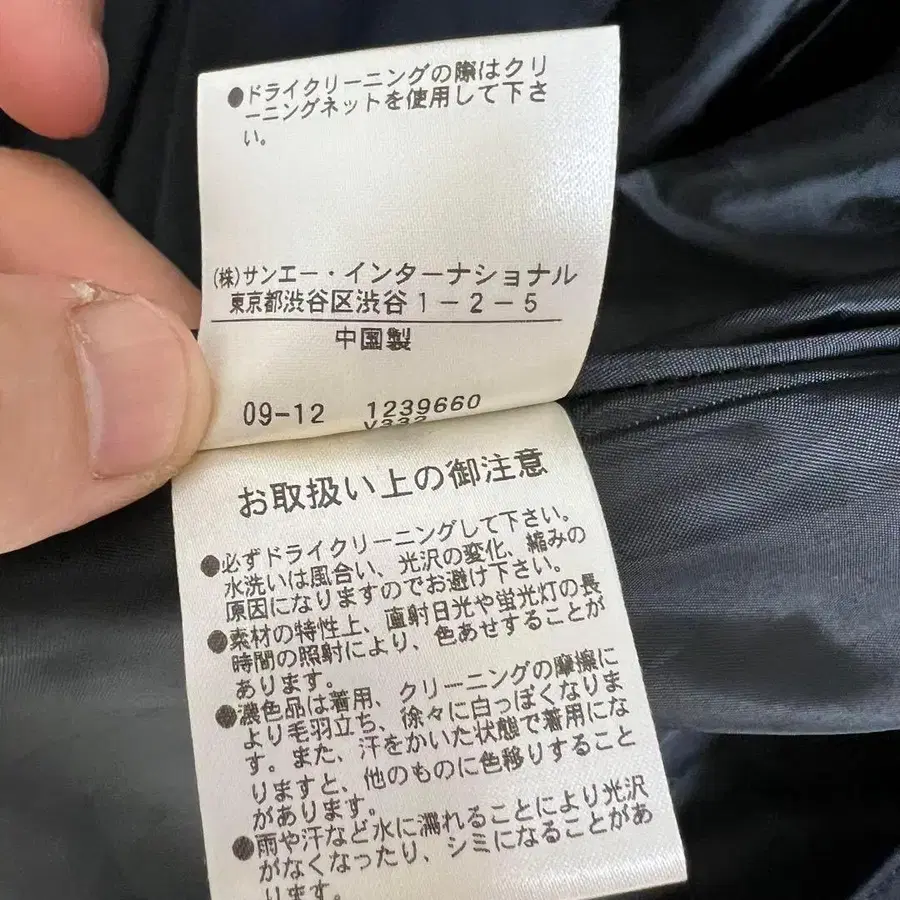 ●ドライクリーニングの際はクリ
ーニングネットを使用して下さ
い。
(株)サンエー・インターナショナル
東京都渋谷区渋谷1-2-5
中国製
09-12 1239660
V332
お取扱い上の御注意
●必ずドライクリーニングして下さい。
水洗いは風合い、光沢の変化、縮みの
原因になりますのでお避け下さい。
●素材の特性上、直射日光や蛍光灯の長
時間の照射により、色あせすることが
あります。
●濃色品は着用、クリーニングの摩擦に
より毛羽立ち、徐々に白っぽくなりま
す。また、汗をかいた状態で着用にな
りますと、他のものに色移りすること
があります。
●雨や汗など水に濡れることにより光沢
がなくなったり、シミになることがあ
ります。